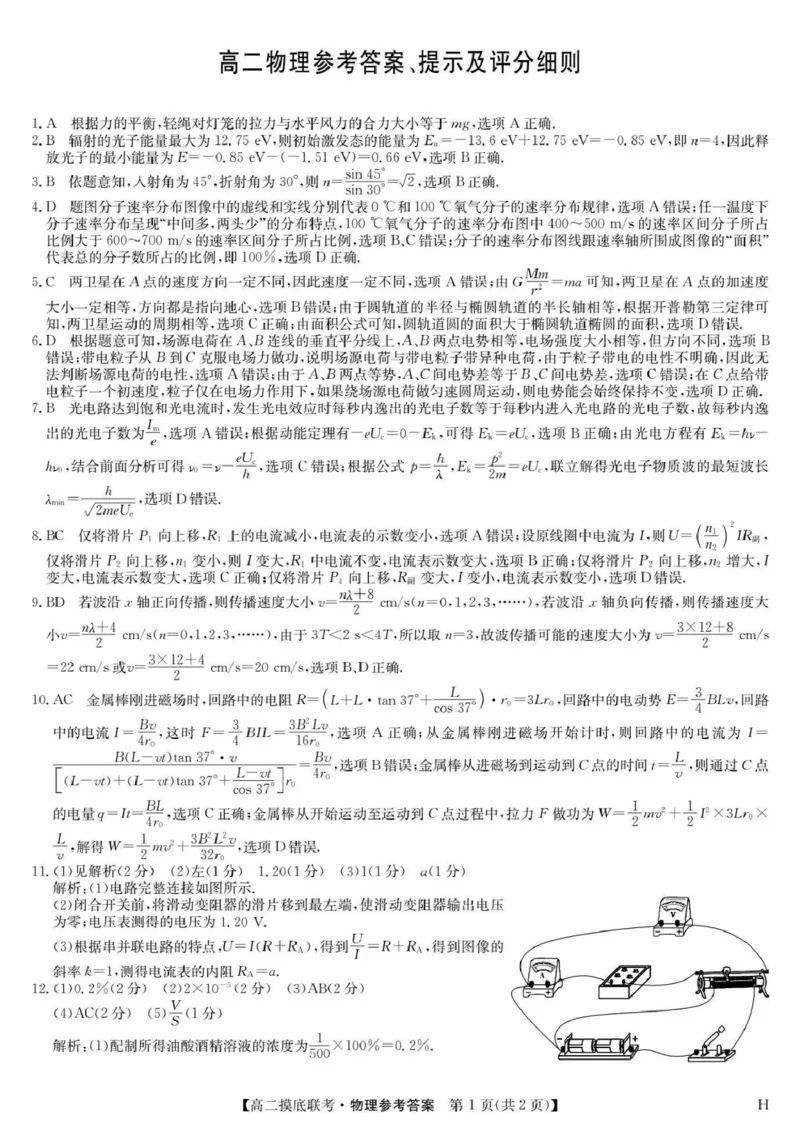 高二物理参考答案、提示及评分细则
1. A 根据力的平衡,轻绳对灯笼的拉力与水平风力的合力大小等于 mg,选项 A 正确.
2. B 辐射的光子能量最大为 12.75 eV,则初始激发态的能量为 Eₙ=-13.6 eV+12.75 eV=-0.85 eV,即 n=4,因此释
放光子的最小能量为 E=-0.85 eV-(-1.51 eV)=0.66 eV,选项 B 正确.
3. B 依题意知,入射角为 45°,折射角为 30°,则 n=sin 45°/sin 30°=√2,选项 B 正确.
4. D 题图分子速率分布图像中的虚线和实线分别代表 0 ℃和 100 ℃氧气分子的速率分布规律,选项 A 错误;任一温度下
分子速率分布呈现“中间多,两头少”的分布特点,100 ℃氧气分子的速率分布图中 400~500 m/s 的速率区间分子所占
比例大于 600~700 m/s 的速率区间分子所占比例,选项 B、C 错误;分子的速率分布图线跟速率轴所围成图像的“面积”
代表总的分子数所占的比例,即 100%,选项 D 正确.
5. C 两卫星在 A 点的速度方向一定不同,因此速度一定不同,选项 A 错误;由 G Mm/r²=ma 可知,两卫星在 A 点的加速度
大小一定相等,方向都是指向地心,选项 B 错误;由于圆轨道的半径与椭圆轨道的半长轴相等,根据开普勒第三定律可
知,两卫星运动的周期相等,选项 C 正确;由面积公式可知,圆轨道圆的面积大于椭圆轨道椭圆的面积,选项 D 错误.
6. D 根据题意可知,场源电荷在 A、B 连线的垂直平分线上,A、B 两点电势相等,电场强度大小相等,但方向不同,选项 B
错误;带电粒子从 B 到 C 克服电场力做功,说明场源电荷与带电粒子带异种电荷,由于粒子带电的电性不明确,因此无
法判断场源电荷的电性,选项 A 错误;由于 A、B 两点等势,A、C 间电势差等于 B、C 间电势差,选项 C 错误;在 C 点给带
电粒子一个初速度,粒子仅在电场力作用下,如果绕场源电荷做匀速圆周运动,则电势能会始终保持不变,选项 D 正确.
7. B 光电路达到饱和光电流时,发生光电效应时每秒内逸出的光电子数等于每秒内进入光电路的光电子数,故每秒内逸
出的光电子数为 Iₘ/e,选项 A 错误;根据动能定理有-eU_c=0-E_k,可得 E_k=eU_c,选项 B 正确;由光电方程有 E_k=hν-
hν₀,结合前面分析可得 ν₀=ν-eU_c/h,选项 C 错误;根据公式 p=h/λ,E_k=p²/2m=eU_c,联立解得光电子物质波的最短波长
λ_min=h/√(2meU_c),选项 D 错误.
8. BC 仅将滑片 P₁ 向上移,R₁ 上的电流减小,电流表的示数变小,选项 A 错误;设原线圈中电流为 I,则 U=(n₁/n₂)²IR副,
仅将滑片 P₂ 向上移,n₁ 变小,则 I 变大,R₁ 中电流不变,电流表示数变大,选项 B 正确;仅将滑片 P₂ 向上移,n₂ 增大,I
变大,电流表示数变大,选项 C 正确;仅将滑片 P₄ 向上移,R副 变大,I 变小,电流表示数变小,选项 D 错误.
9. BD 若波沿 x 轴正向传播,则传播速度大小 v=(nλ+8)/2 cm/s(n=0,1,2,3,……),若波沿 x 轴负向传播,则传播速度大
小v=(nλ+4)/2 cm/s(n=0,1,2,3,……),由于 3T<2 s<4T,所以取 n=3,故波传播可能的速度大小为 v=(3×12+8)/2 cm/s
=22 cm/s 或v=(3×12+4)/2 cm/s=20 cm/s,选项 B、D 正确.
10. AC 金属棒刚进磁场时,回路中的电阻 R=(L+L·tan 37°+L/cos 37°)·r₀=3Lr₀,回路中的电动势 E=3/4 BLv,回路
中的电流 I=Bv/4r₀,这时 F=3/4 BIL=3B²Lv/16r₀,选项 A 正确;从金属棒刚进磁场开始计时,则回路中的电流为 I=
B(L-vt)tan 37°·v/{[(L-vt)+(L-vt)tan 37°+(L-vt)/cos 37°]r₀}=Bv/4r₀,选项 B 错误;金属棒从进磁场到运动到 C 点的时间 t=L/v,则通过 C 点
的电量 q=It=BL/4r₀,选项 C 正确;金属棒从开始运动至运动到 C 点过程中,拉力 F 做功为 W=1/2 mv²+1/2 I²×3Lr₀×
L/v,解得 W=1/2 mv²+3B²L²v/32r₀,选项 D 错误.
11. (1)见解析(2 分) (2)左(1 分) 1.20(1 分) (3)1(1 分) a(1 分)
解析:(1)电路完整连接如图所示.
(2)闭合开关前,将滑动变阻器的滑片移到最左端,使滑动变阻器输出电压
为零;电压表测得的电压为 1.20 V.
(3)根据串并联电路的特点,U=I(R+R_A),得到 U/I=R+R_A,得到图像的
斜率 k=1,测得电流表的内阻 R_A=a.
V
- +
A
- +
12. (1)0.2%(2 分) (2)2×10⁻⁵(2 分) (3)AB(2 分)
(4)AC(2 分) (5)V/S(1 分)
解析:(1)配制所得油酸酒精溶液的浓度为 1/500×100%=0.2%.
【高二摸底联考·物理参考答案 第 1 页(共 2 页)】 H